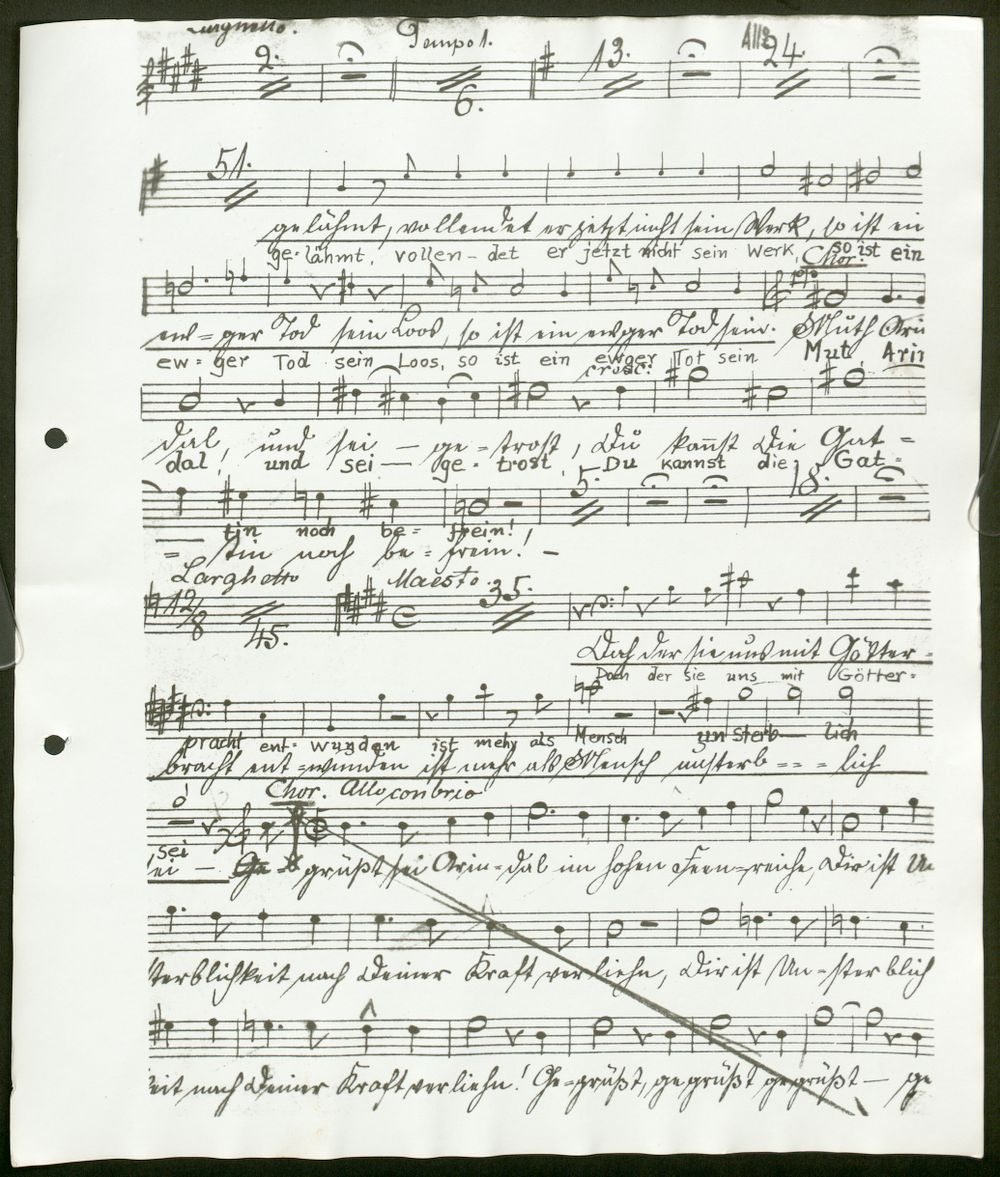 Larghetto.
2. Tempo 1. 6. 13. All? 24.
51.
gelähmt, vollendet er jetzt nicht sein Werk, so ist ein
ge-lähmt, vollen-det er jetzt nicht sein Werk, so ist ein
Chor.
ew=ger Tod sein Loos, so ist ein ewger Tod sein. Muth Arin
ew=ger Tod sein Loos, so ist ein ewger Tot sein Mut, Arin
cresc:
dal, und sei — ge=trost, Du kannst die Gat=
dal, und sei — ge-trost, Du kannst die Gat-
5. 18.
tin noch be=frein!
= tin noch be=frein! —
Larghetto Maesto.
12/8 45. 35.
Doch der sie uns mit Götter=
Doch der sie uns mit Götter=
pracht ent-wunden ist mehr als Mensch unsterb— lich
bracht ent=wunden ist mehr als Mensch unsterb=== lich
Chor. Allo con brio
sei
ei — Ge=grüßt sei Arin=dal im hohen Feen=reiche, Dir ist Un
sterblichkeit nach Deiner Kraft verliehn, Dir ist Un=sterblich
keit nach Deiner Kraft verliehn! Ge=grüßt, gegrüßt gegrüßt — ge